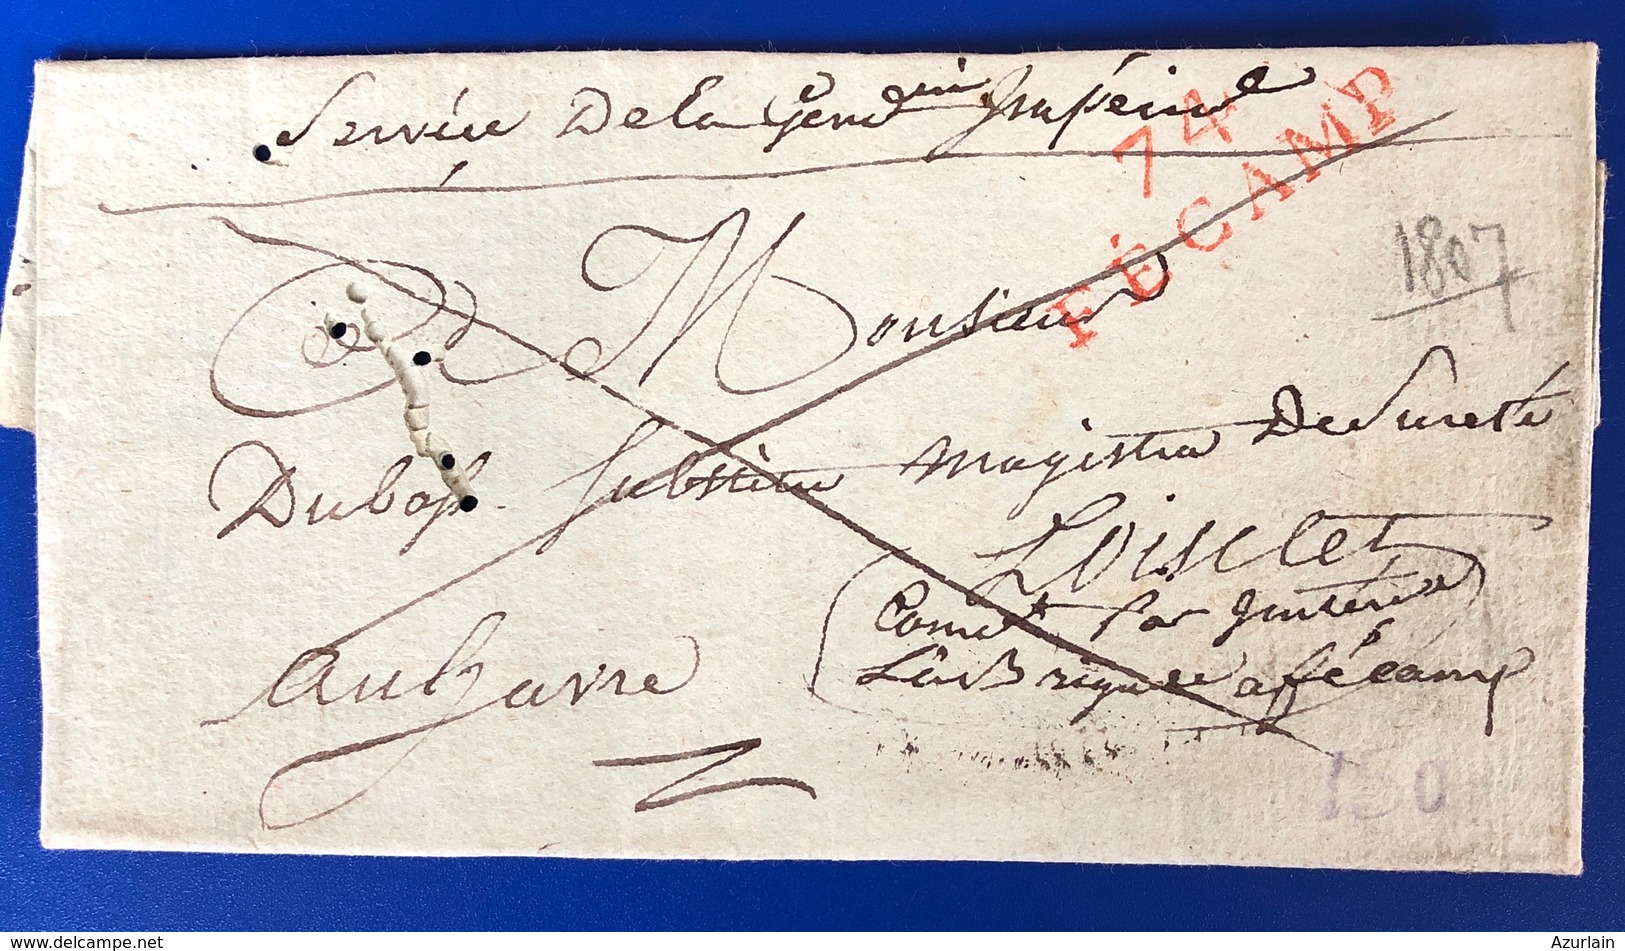 Service De la Gend^erie Impériale
74
FÉCAMP
1807
A Monsieur
Dubosc Substitu Magistra De Sureté
Loiselet
Comd^t par Interim
La Brigade a fécamp
au havre
130
www.delcampe.net
Azurlain